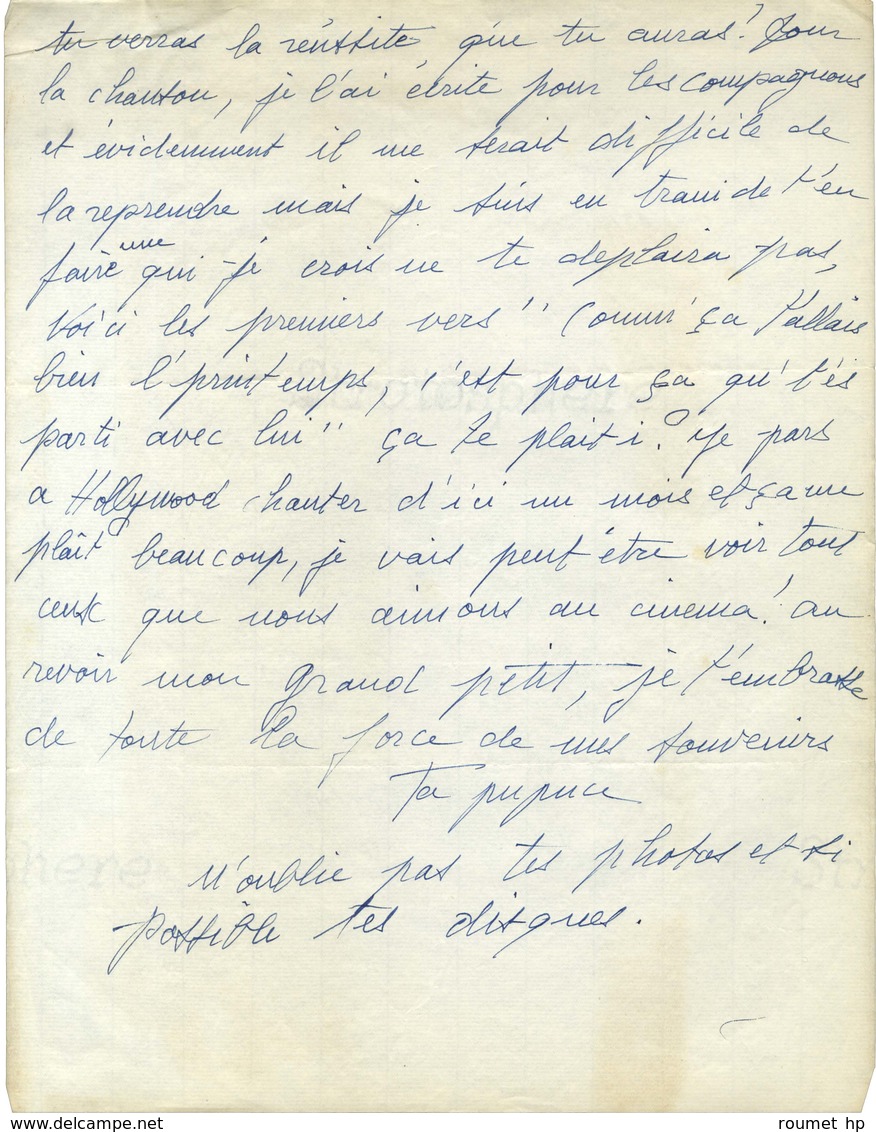 tu verras la réussite que tu auras! Pour
la chanson, je l'ai écrite pour les compagnons
et évidemment il me serait difficile de
la reprendre mais je suis en train de t'en
faire une qui je crois ne te deplaira pas,
Voici les premiers vers " Comm' ça t'allais
bien l'printemps, c'est pour ça qu't'es
parti avec lui" ça te plait-i? Je pars
a Hollywood chanter d'ici un mois et ça me
plaît beaucoup, je vais peut être voir tout
ceux que nous aimons au cinema! au
revoir mon grand petit, je t'embrasse
de toute la force de mes souvenirs
Ta pupuce
N'oublie pas tes photos et si
possible tes disques.
roumet hp